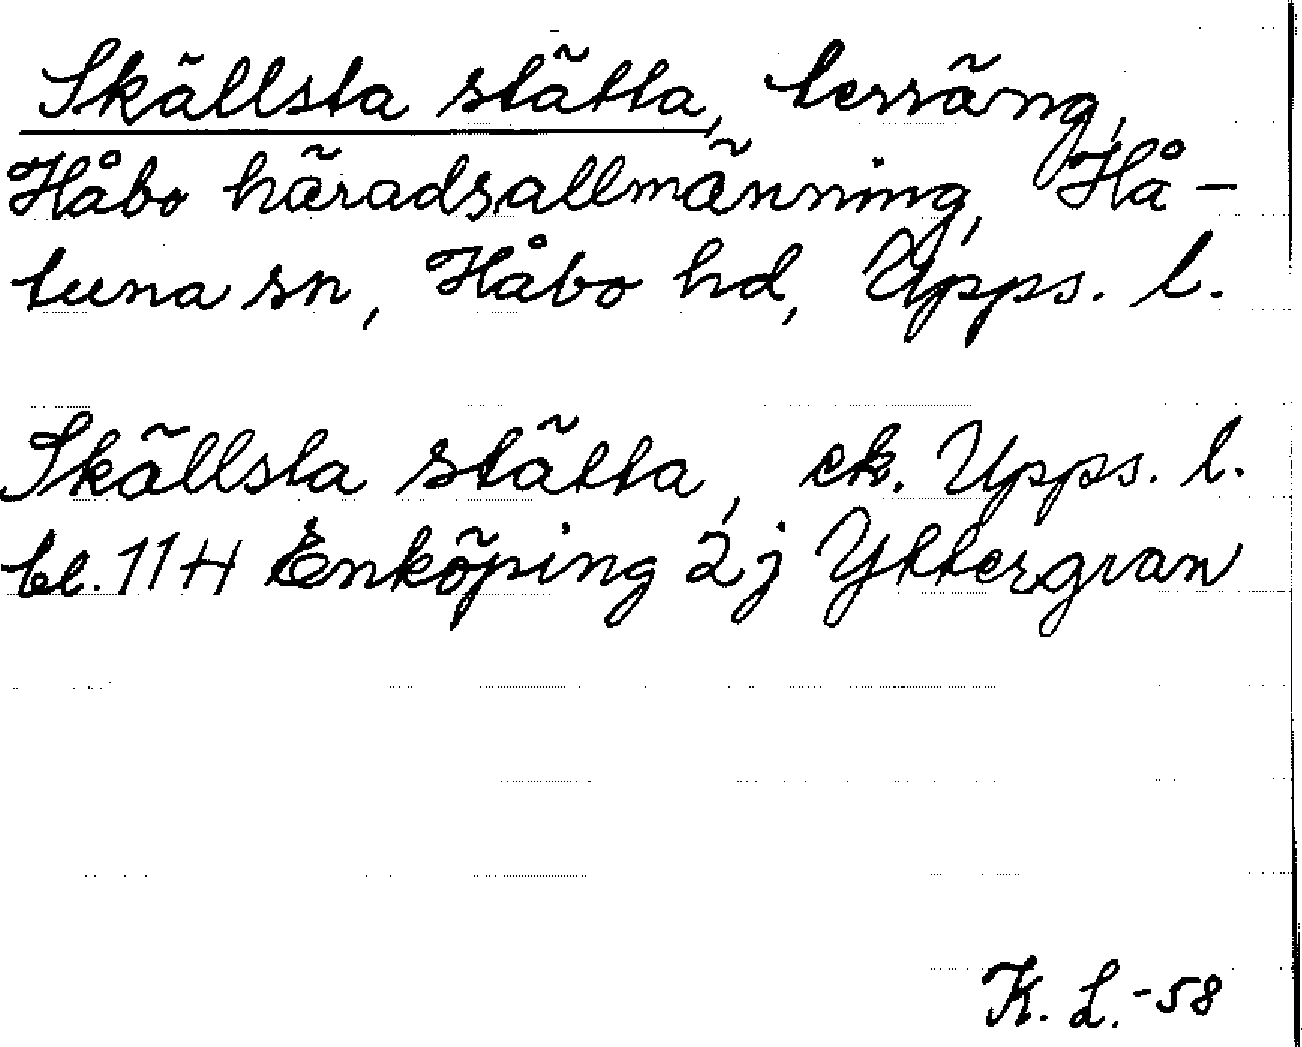 Skällsta stätta, terräng,
Håbo häradsallmänning, Hå-
tuna sn, Håbo hd, Upps. l.
Skällsta stätta, ek. Upps. l.
bl. 11H Enköping 2j Yttergran
K. L. -58